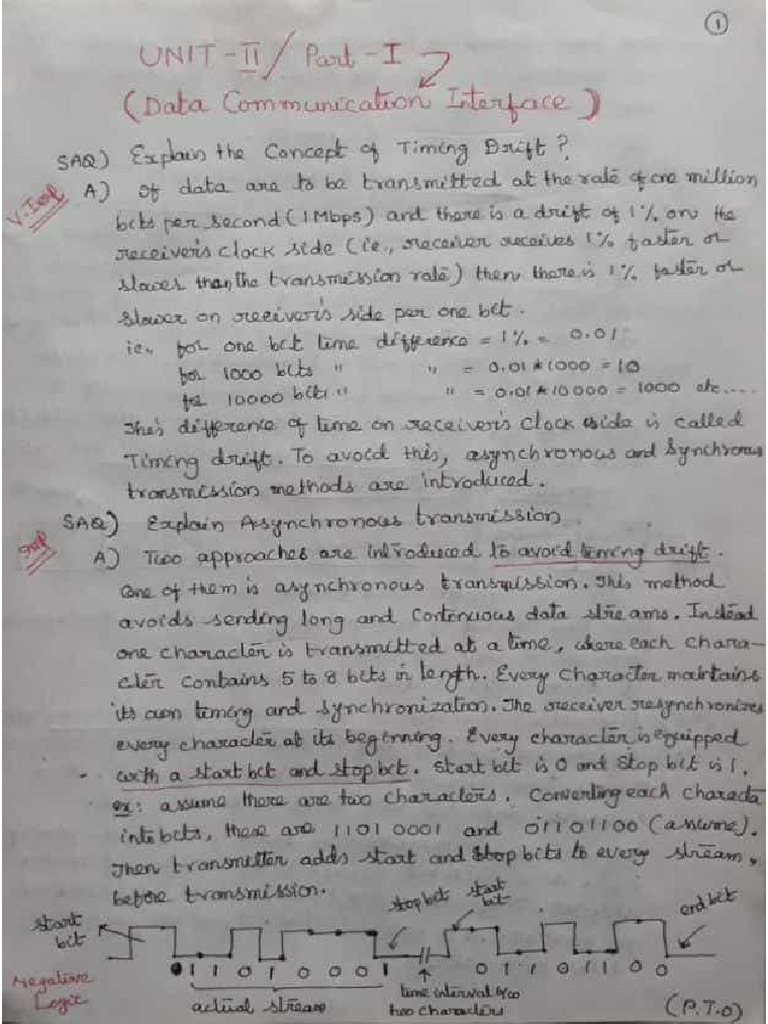 1
UNIT-II / Part-I
(Data Communication Interface)
SAQ) Explain the Concept of Timing Drift?
V.Imp A) If data are to be transmitted at the rate of one million
bits per second (1Mbps) and there is a drift of 1% on the
receiver's clock side (ie., receiver receives 1% faster or
slower than the transmission rate) then there is 1% faster or
slower on receiver's side per one bit.
ie., for one bit time difference = 1% = 0.01
for 1000 bits " " = 0.01*1000 = 10
for 10000 bits " " = 0.01*10000 = 1000 etc....
This difference of time on receiver's clock side is called
Timing drift. To avoid this, asynchronous and Synchronous
transmission methods are introduced.
SAQ) Explain Asynchronous transmission
Imp A) Two approaches are introduced to avoid timing drift.
One of them is asynchronous transmission. This method
avoids sending long and Continuous data streams. Instead
one character is transmitted at a time, where each chara-
cter contains 5 to 8 bits in length. Every Character maintains
its own timing and synchronization. The receiver resynchronizes
every character at its beginning. Every character is equipped
with a start bit and stop bit. Start bit is 0 and Stop bit is 1.
ex: assume there are two characters. Converting each character
into bits, these are 11010001 and 01101100 (assume).
Then transmitter adds start and stop bits to every stream,
before transmission.
start bit
stop bit
start bit
end bit
0 1 1 0 1 0 0 0 1
0 1 1 0 1 1 0 0
Negative Logic
actual stream
time interval b/w two characters
(P.T.O)